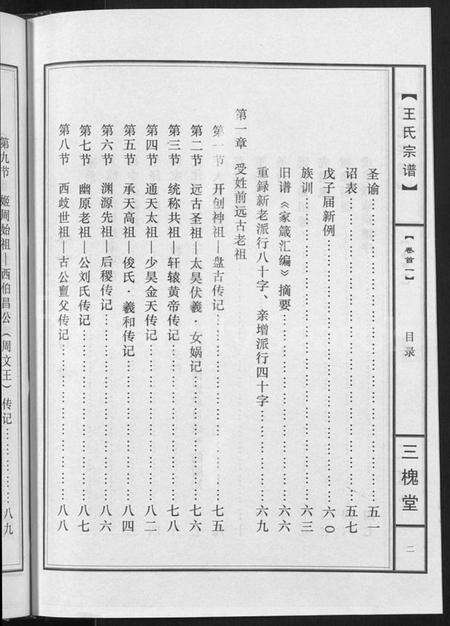 【王氏宗谱】
【卷首一】
目录
三槐堂
二
圣谕……五一
诏表……五七
戊子届新例……六〇
族训……六三
旧谱《家箴汇编》摘要……六六
重録新老派行八十字、亲增派行四十字……六九
第一章 受姓前远古老祖
第一节 开创神祖—盘古传记……七五
第二节 远古圣祖—太昊伏羲·女娲记……七六
第三节 统称共祖—轩辕黄帝传记……七八
第四节 通天太祖—少昊金天传记……八二
第五节 承天高祖—俊氏·羲和传记……八四
第六节 渊源先祖—后稷传记……八六
第七节 幽原老祖—公刘氏传记……八七
第八节 西歧世祖—古公亶父传记……八八
第九节 姬周始祖—西伯昌公（周文王）传记……八九